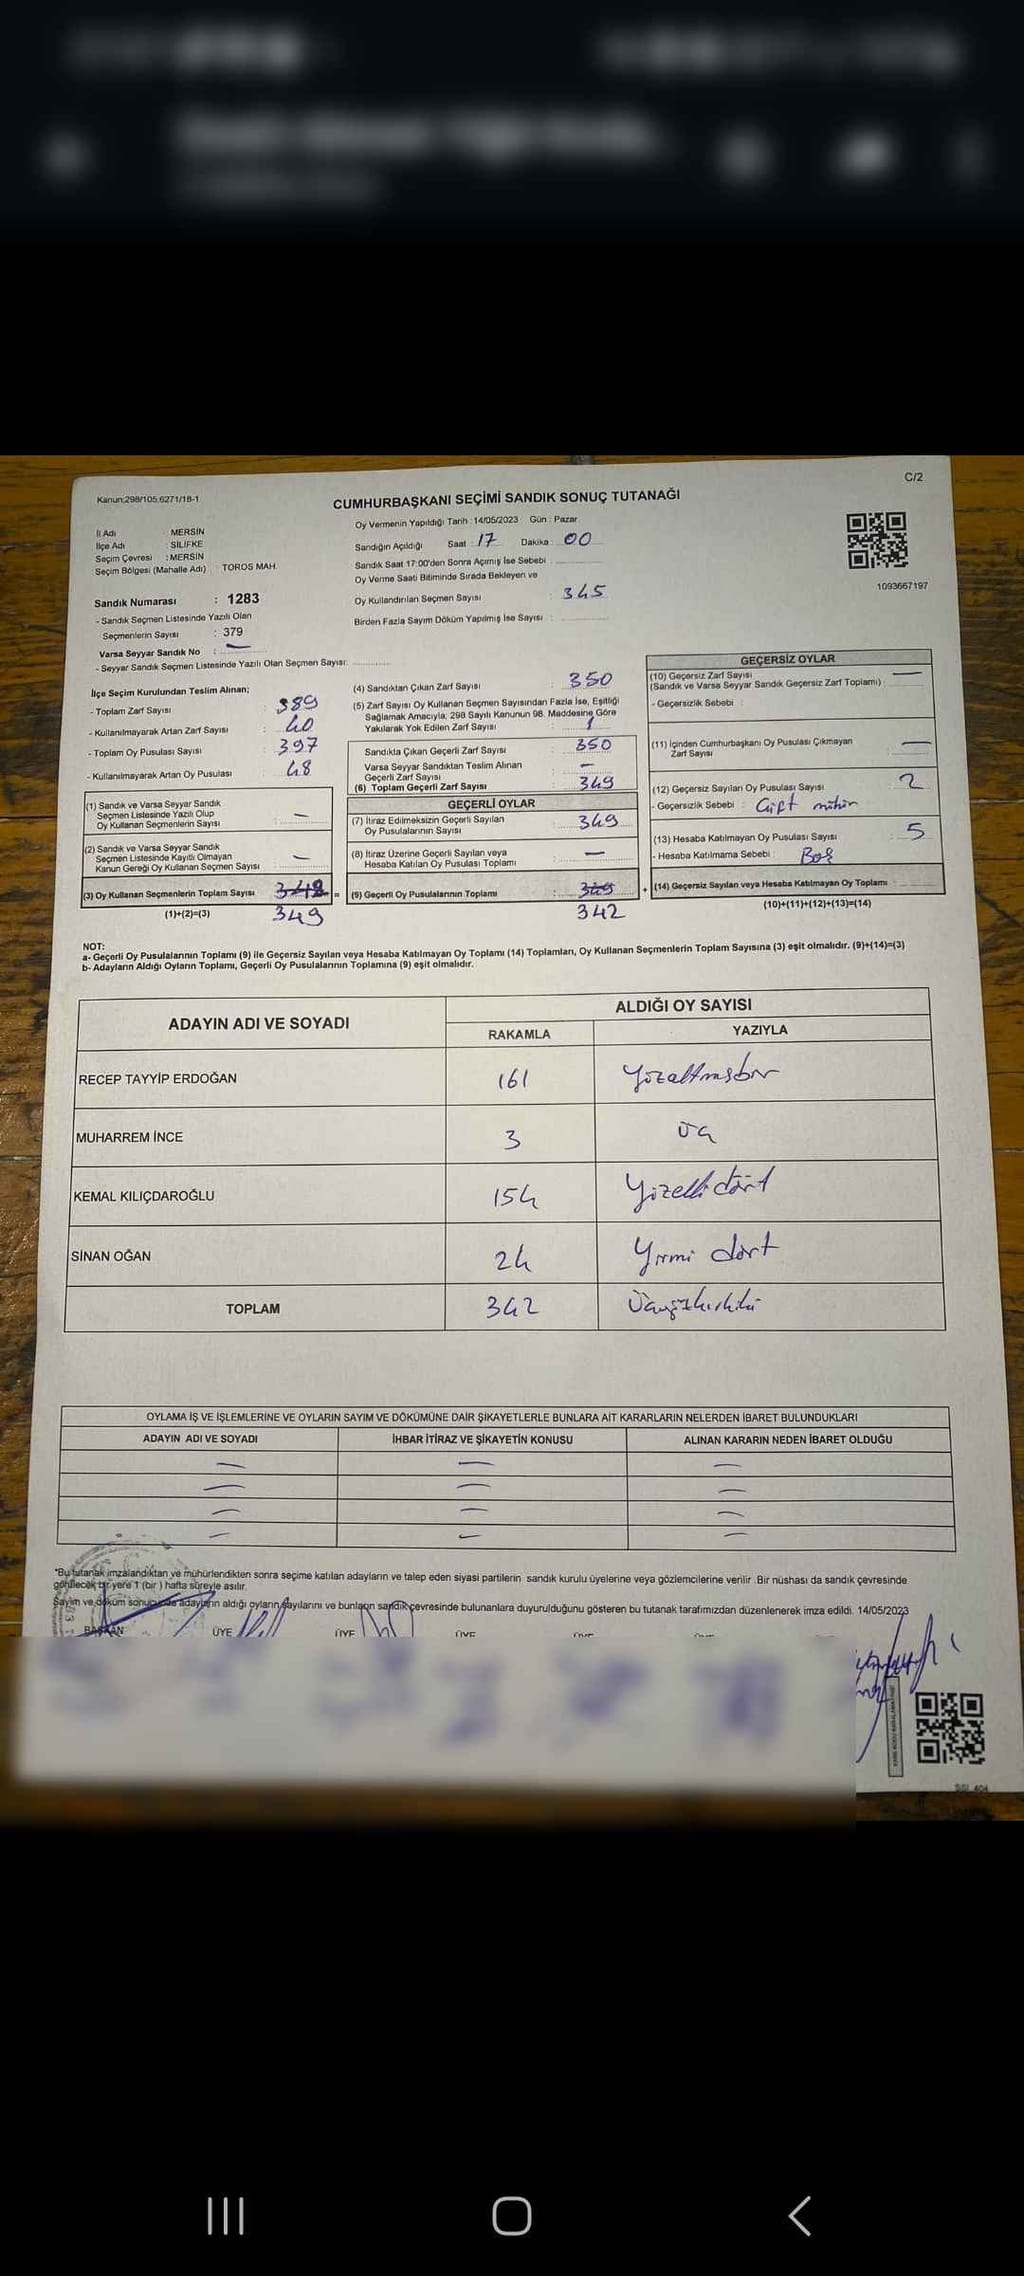 C/2
Kanun;298/105;6271/18-1
CUMHURBAŞKANI SEÇİMİ SANDIK SONUÇ TUTANAĞI
İl Adı : MERSİN
İlçe Adı : SİLİFKE
Seçim Çevresi : MERSİN
Seçim Bölgesi (Mahalle Adı) : TOROS MAH.
Sandık Numarası : 1283
- Sandık Seçmen Listesinde Yazılı Olan
Seçmenlerin Sayısı : 379
Varsa Seyyar Sandık No : —
- Seyyar Sandık Seçmen Listesinde Yazılı Olan Seçmen Sayısı: ............
Oy Vermenin Yapıldığı Tarih : 14/05/2023 Gün : Pazar
Sandığın Açıldığı Saat : 17 Dakika : 00
Sandık Saat 17:00'den Sonra Açımış İse Sebebi :
Oy Verme Saati Bitiminde Sırada Bekleyen ve
Oy Kullandırılan Seçmen Sayısı : 345
Birden Fazla Sayım Döküm Yapılmış İse Sayısı :
1093667197
İlçe Seçim Kurulundan Teslim Alınan;
- Toplam Zarf Sayısı : 389
- Kullanılmayarak Artan Zarf Sayısı : 40
- Toplam Oy Pusulası Sayısı : 397
- Kullanılmayarak Artan Oy Pusulası : 48
(1) Sandık ve Varsa Seyyar Sandık
Seçmen Listesinde Yazılı Olup
Oy Kullanan Seçmenlerin Sayısı : —
(2) Sandık ve Varsa Seyyar Sandık
Seçmen Listesinde Kayıtlı Olmayan
Kanun Gereği Oy Kullanan Seçmen Sayısı : —
(3) Oy Kullanan Seçmenlerin Toplam Sayısı 348 =
(1)+(2)=(3) 349
(4) Sandıktan Çıkan Zarf Sayısı : 350
(5) Zarf Sayısı Oy Kullanan Seçmen Sayısından Fazla İse, Eşitliği
Sağlamak Amacıyla; 298 Sayılı Kanunun 98. Maddesine Göre
Yakılarak Yok Edilen Zarf Sayısı : 1
Sandıkta Çıkan Geçerli Zarf Sayısı : 350
Varsa Seyyar Sandıktan Teslim Alınan
Geçerli Zarf Sayısı : —
(6) Toplam Geçerli Zarf Sayısı : 349
GEÇERLİ OYLAR
(7) İtiraz Edilmeksizin Geçerli Sayılan
Oy Pusulalarının Sayısı : 349
(8) İtiraz Üzerine Geçerli Sayılan veya
Hesaba Katılan Oy Pusulası Toplamı : —
(9) Geçerli Oy Pusulalarının Toplamı : 349 +
342
GEÇERSİZ OYLAR
(10) Geçersiz Zarf Sayısı
(Sandık ve Varsa Seyyar Sandık Geçersiz Zarf Toplamı) : —
- Geçersizlik Sebebi :
(11) İçinden Cumhurbaşkanı Oy Pusulası Çıkmayan
Zarf Sayısı : —
(12) Geçersiz Sayılan Oy Pusulası Sayısı : 2
- Geçersizlik Sebebi : Çift mühür
(13) Hesaba Katılmayan Oy Pusulası Sayısı : 5
- Hesaba Katılmama Sebebi : Boş
(14) Geçersiz Sayılan veya Hesaba Katılmayan Oy Toplamı :
(10)+(11)+(12)+(13)=(14)
NOT:
a- Geçerli Oy Pusulalarının Toplamı (9) ile Geçersiz Sayılan veya Hesaba Katılmayan Oy Toplamı (14) Toplamları, Oy Kullanan Seçmenlerin Toplam Sayısına (3) eşit olmalıdır. (9)+(14)=(3)
b- Adayların Aldığı Oyların Toplamı, Geçerli Oy Pusulalarının Toplamına (9) eşit olmalıdır.
ADAYIN ADI VE SOYADI
ALDIĞI OY SAYISI
RAKAMLA YAZIYLA
RECEP TAYYİP ERDOĞAN 161 Yüzaltmışbir
MUHARREM İNCE 3 üç
KEMAL KILIÇDAROĞLU 154 Yüzelli dört
SİNAN OĞAN 24 Yirmi dört
TOPLAM 342 Üçyüzkırkiki
OYLAMA İŞ VE İŞLEMLERİNE VE OYLARIN SAYIM VE DÖKÜMÜNE DAİR ŞİKAYETLERLE BUNLARA AİT KARARLARIN NELERDEN İBARET BULUNDUKLARI
ADAYIN ADI VE SOYADI İHBAR İTİRAZ VE ŞİKAYETİN KONUSU ALINAN KARARIN NEDEN İBARET OLDUĞU
— — —
— — —
— — —
— — —
*Bu tutanak imzalandıktan ve mühürlendikten sonra seçime katılan adayların ve talep eden siyasi partilerin sandık kurulu üyelerine veya gözlemcilerine verilir. Bir nüshası da sandık çevresinde
görülecek bir yere 1 (bir ) hafta süreyle asılır.
Sayım ve döküm sonucunda adayların aldığı oyların sayılarını ve bunların sandık çevresinde bulunanlara duyurulduğunu gösteren bu tutanak tarafımızdan düzenlenerek imza edildi. 14/05/2023
BAŞKAN ÜYE ÜYE ÜYE
SSI_404